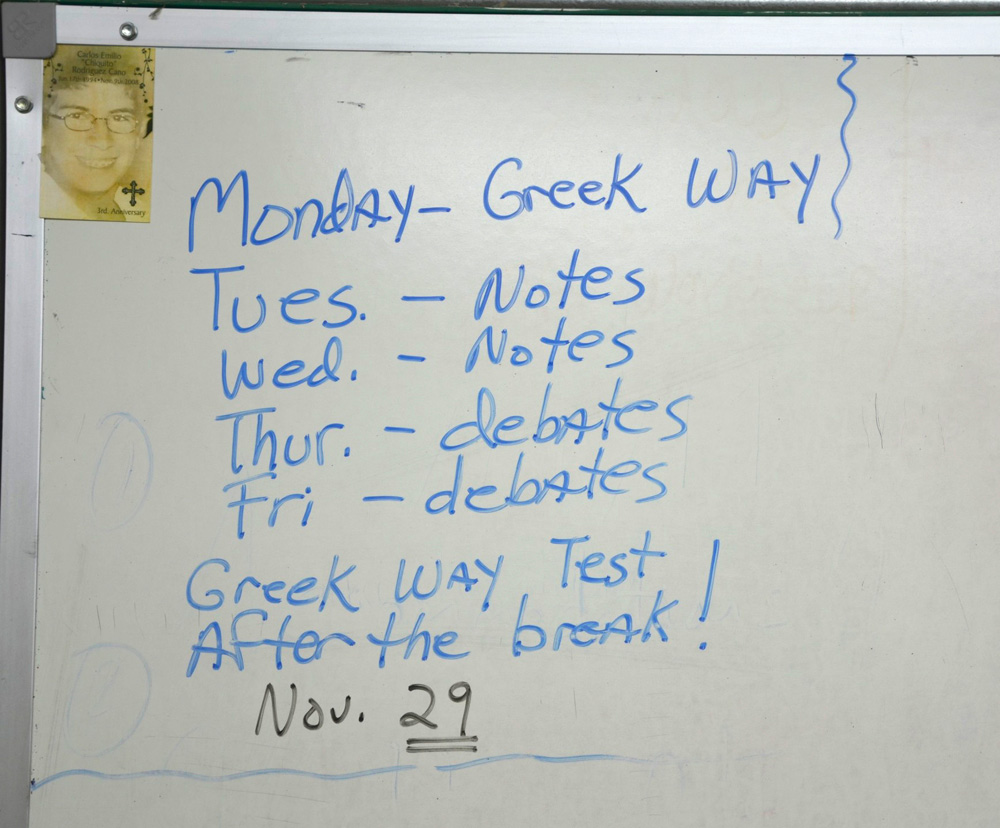 Carlos Emilio
"Chiquito"
Rodriguez Cano
3rd. Anniversary
Monday- Greek Way
Tues. - Notes
Wed. - Notes
Thur. - debates
Fri - debates
Greek Way Test
After the break!
Nov. 29